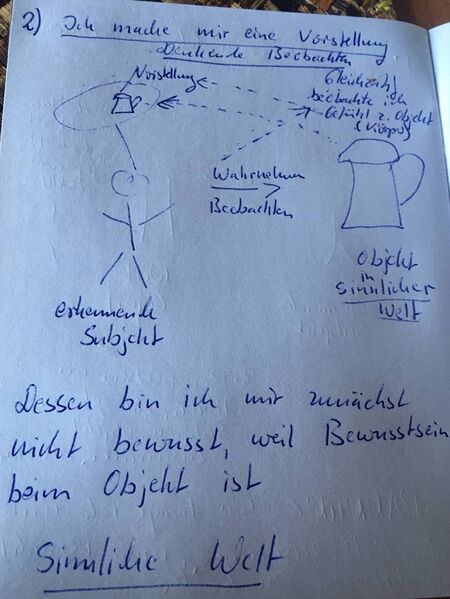 2) Ich mache mir eine Vorstellung
Denkende Beobachten
Vorstellung
Gleichzeitig
beobachte ich
Gefühl z. Objekt
(Körper)
Wahrnehmen
Beobachten
Objekt
in
sinnlicher
Welt
erkennende
Subjekt
Dessen bin ich mir zunächst
nicht bewusst, weil Bewusstsein
beim Objekt ist
Sinnliche Welt